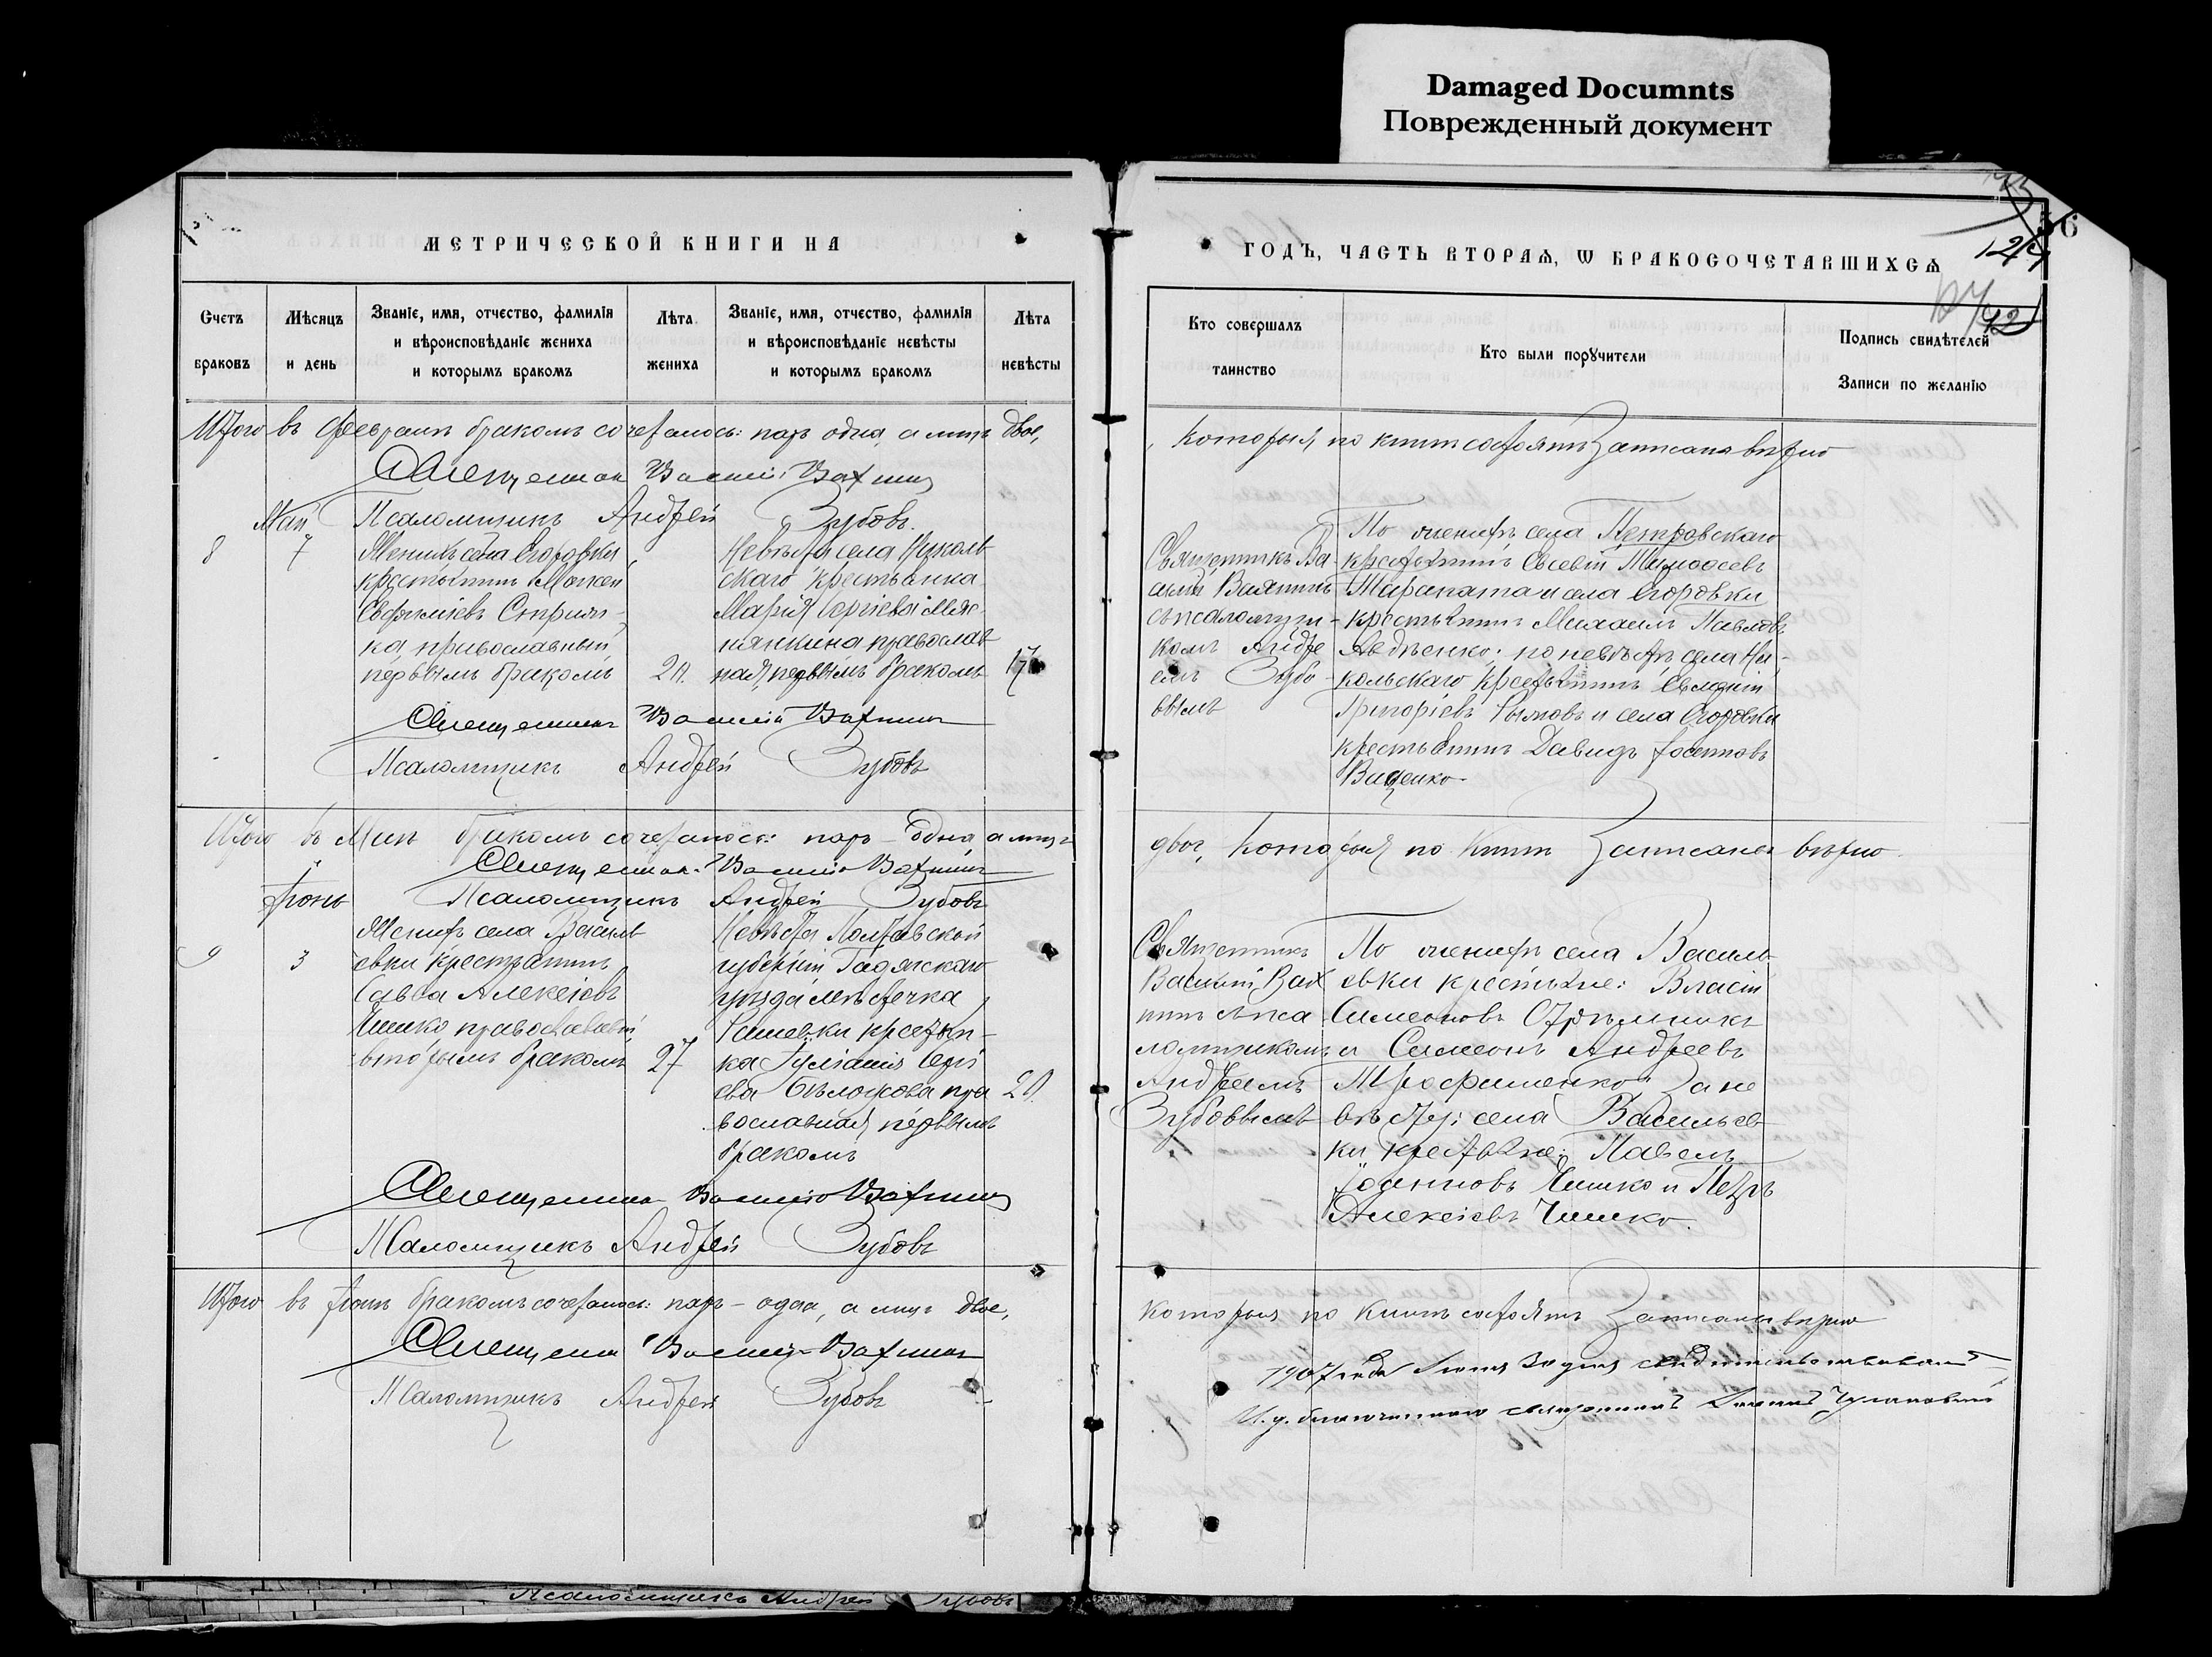 Damaged Documnts
Поврежденный документ
56
МЕТРИЧЕСКОЙ КНИГИ НА
ГОДЪ, ЧАСТЬ ВТОРАЯ, Ѡ БРАКОСОЧЕТАВШИХСЯ
Счетъ браковъ
Мѣсяцъ и день
Званіе, имя, отчество, фамилія
и вѣроисповѣданіе жениха
и которымъ бракомъ
Лѣта жениха
Званіе, имя, отчество, фамилія
и вѣроисповѣданіе невѣсты
и которымъ бракомъ
Лѣта невѣсты
Кто совершалъ таинство
Кто были порꙋчители
Подпись свидѣтелей
Записи по желанію
Итого въ февралѣ бракомъ сочеталось: паръ одна, а лицъ двое,
которыя по книгѣ состоятъ записаны вѣрно
Священникъ Василій Вахнинъ
Псаломщикъ Андрей Зубовъ.
Май
8
7
Женихъ села Егоровки
крестьянинъ
Евфиміевъ
ка православный
первымъ бракомъ
Невѣста села Николь
скаго крестьянка
Марія Сергіева
православ
ная, первымъ бракомъ
17
Священникъ Ва
силій Вахнинъ
съ псаломщи-
комъ Андре
емъ Зубо-
вымъ
По женихѣ села Петровскаго
крестьянинъ Евсевій
и села Егоровки
крестьянинъ Михаилъ Павловъ
Авдѣенко; по невѣстѣ села Ни-
кольскаго крестьянинъ
Григоріевъ и села Егоровки
крестьянинъ Давидъ Іосифовъ
Виценко
Священникъ Василій Вахнинъ
Псаломщикъ Андрей Зубовъ
Итого въ Маѣ бракомъ сочеталось: паръ - одна, а лицъ
двое, которыя по книгѣ записаны вѣрно.
Священникъ Василій Вахнинъ
Іюнь
Псаломщикъ Андрей Зубовъ
9
3
Женихъ села Василь
евки крестьянинъ
Савва Алексіевъ
Чишко православный,
вторымъ бракомъ
27
Невѣста Полтавской
губерніи Гадячскаго
уѣзда мѣстечка
Рашевки крестьян-
ка Іуліанія
ева пра
вославная, первымъ
бракомъ
Священникъ
Василій Вах
нинъ съ пса
ломщикомъ
Андреемъ
Зубовымъ
По женихѣ села Василь-
евки крестьяне: Власій
Симеоновъ
и Симеонъ Андреевъ
Трофименко, а по не
вѣстѣ: села Васильев
ки крестьяне: Павелъ
Іоанновъ Чишко и Петръ
Алексіевъ Чишко.
Священникъ Василій Вахнинъ
Псаломщикъ Андрей Зубовъ
Итого въ Іюнѣ бракомъ сочеталось: паръ - одна, а лицъ двое,
которыя по книгѣ состоятъ записаны вѣрно
Священникъ Василій Вахнинъ
Псаломщикъ Андрей Зубовъ
1907 года Іюня
И. д. благочиннаго священникъ
Псаломщикъ Андрей Зубовъ